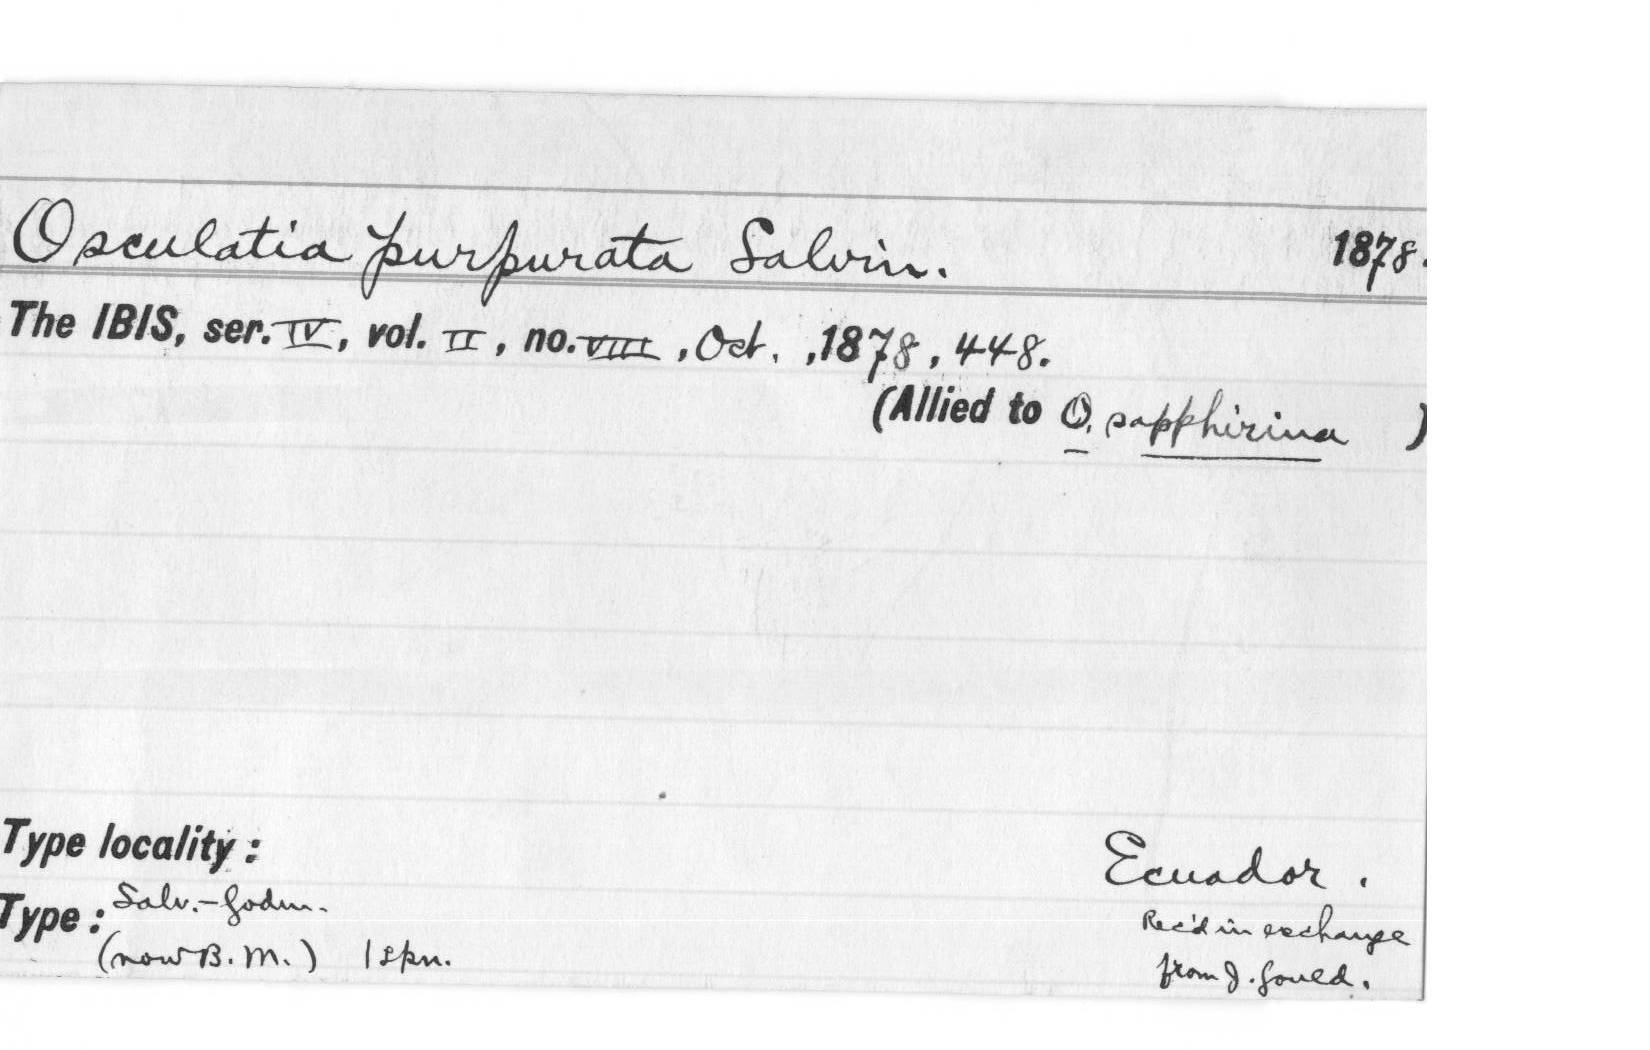 Osculatia purpurata Salvin. 1878.
The IBIS, ser. IV, vol. II, no. VIII, Oct. ,1878, 448.
(Allied to O. sapphirina )
Type locality: Ecuador.
Type: Salv.-Godm. Rec'd in exchange
(now B.M.) 1 spn. from J. Gould.